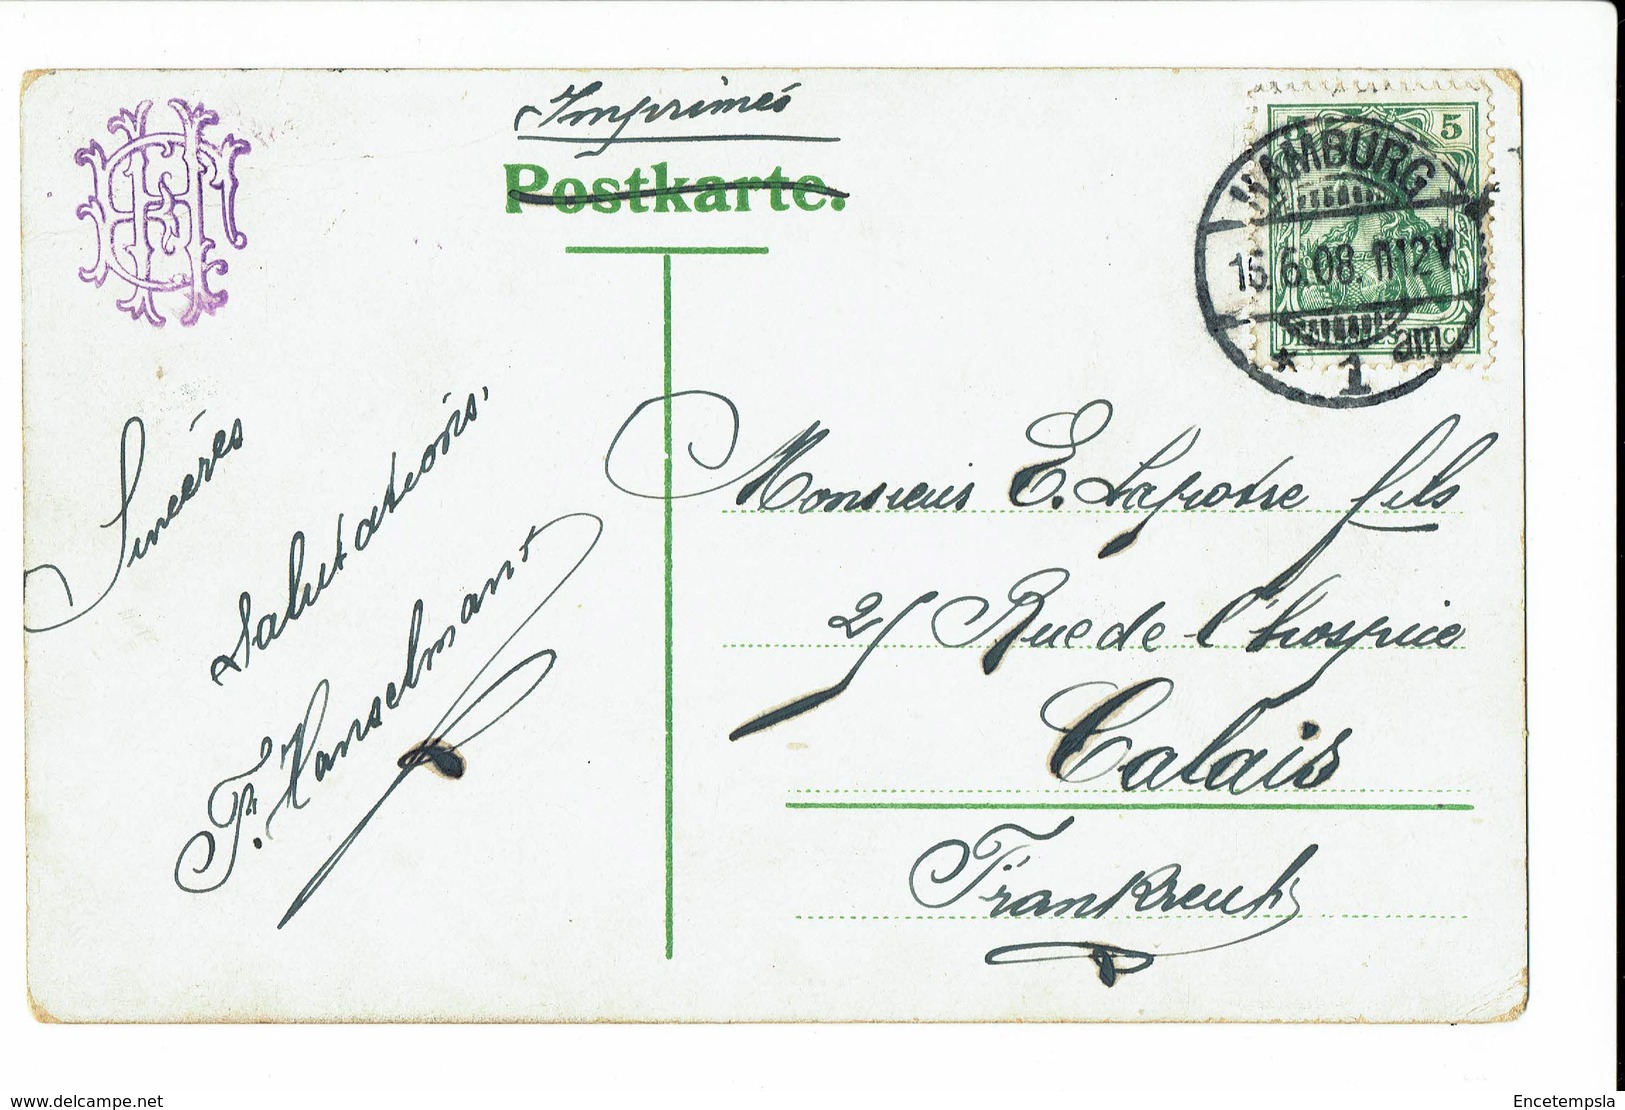 Imprimés
Postkarte.
5
HAMBURG
15.6.08.11-12V.
* 1 am
DEUTSCHES REICH
Sincères
Salutations,
F. Hanselmann
Monsieur E. Lapotre fils
25 Rue de l'hospice
Calais
Frankreich
www.delcampe.net
Encetempsla